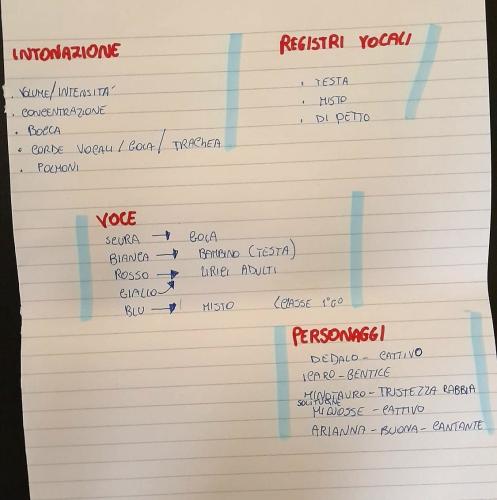 INTONAZIONE
. VOLUME/INTENSITÀ
. CONCENTRAZIONE
• BOCCA
• CORDE VOCALI/GOLA/TRACHEA
• POLMONI
REGISTRI VOCALI
. TESTA
. MISTO
. DI PETTO
VOCE
SCURA → GOLA
BIANCA → BAMBINO (TESTA)
ROSSO → LIRICI ADULTI
GIALLO →
BLU → MISTO (CLASSE 1°GO
PERSONAGGI
DEDALO - CATTIVO
ICARO -
MINOTAURO - TRISTEZZA RABBIA
SOLITUDINE
MINOSSE - CATTIVO
ARIANNA - BUONA - CANTANTE